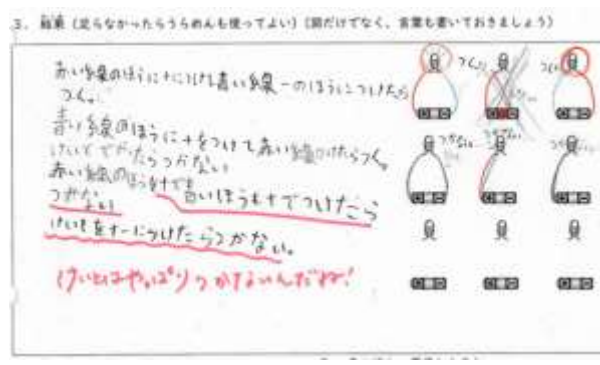 3. 結果（足らなかったらうらめんも使ってよい）（図だけでなく、言葉も書いておきましょう）
赤い線のほうに+につけて青い線ーのほうにつけたら
つく。
青い線のほうに+をつけて赤い線のけたらつく。
けいとでやったらつかない
赤い線のほうを+でも
つかない 青いほうも+でつけたら
けいとを+ーにつけたらつかない。
けいとはやっぱりつかないんだね!
つく
つく
つかない
つかない